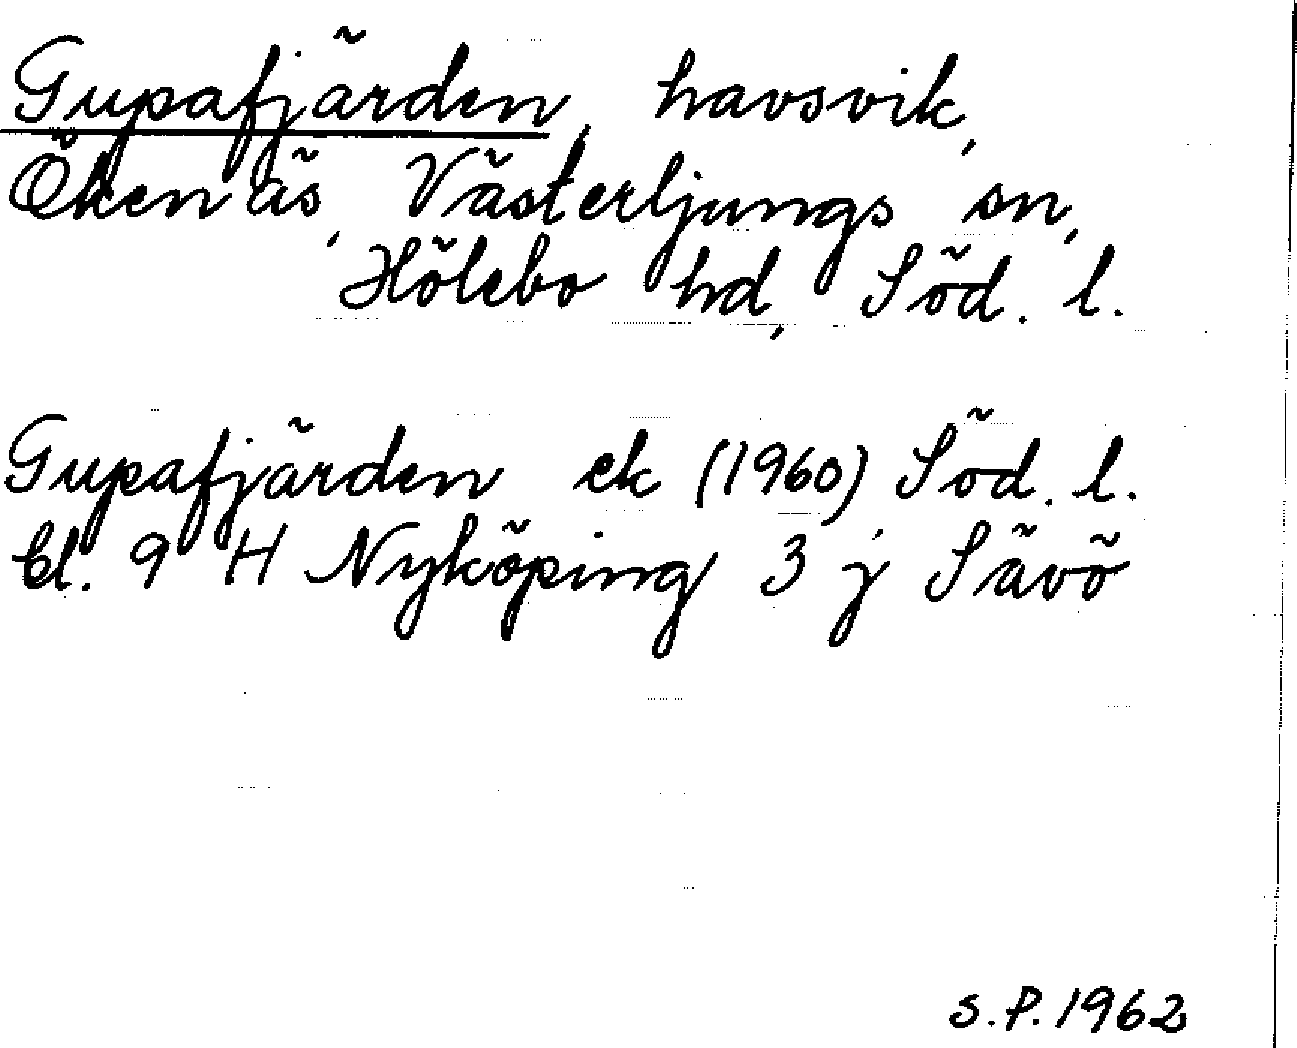 Gupafjärden, havsvik,
Ökenäs, Västerljungs sn,
Hölebo hd, Söd. l.
Gupafjärden ek (1960) Söd. l.
bl. 9 H Nyköping 3 j Sävö
S.P. 1962